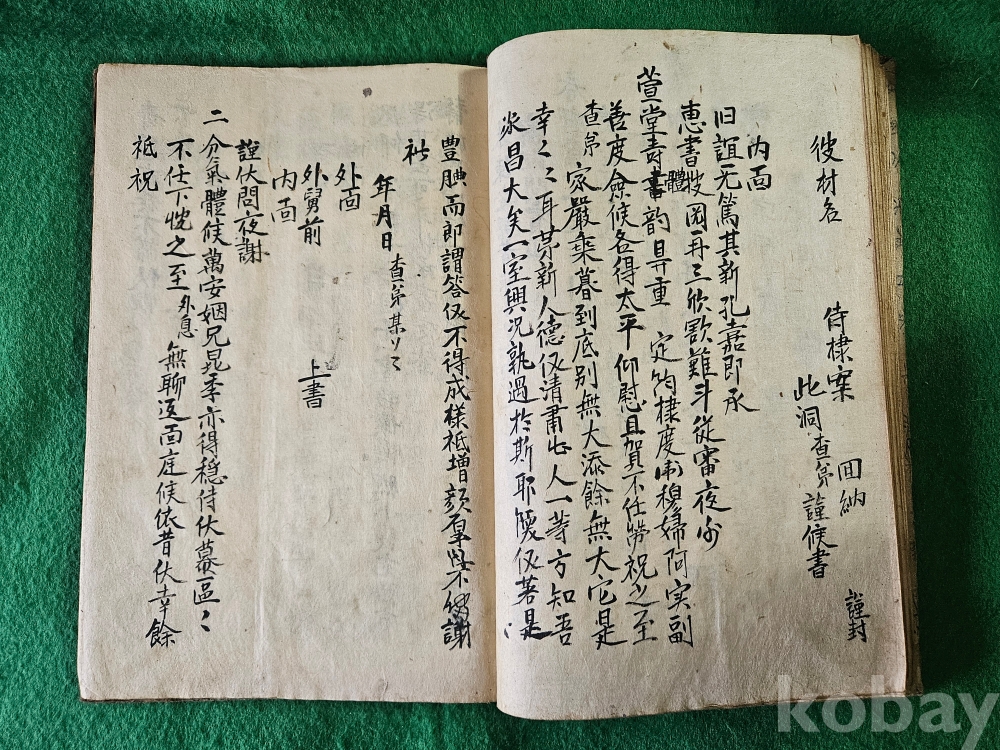 彼村名
侍棣案 回納
此洞査弟謹候書
謹封
内面
旧誼旡篤其新孔嘉即承
惠書披図再三欣歎難斗從審夜尒
萱堂壽體韵昇重 定竘棣度甫穆婦阿実副
善度僉候各得太平仰慰且賀不任勞祝之至
査弟 家嚴乘暮到底別無大添餘無大它是
幸〻耳 弟新人德仪清肅出人一等方知吾
家昌大矣一室興況孰過於斯耶賤仪若是
豊腆而即謂答仪不得成樣祗增顔厚畢不備謝
礼
年月日 査弟某〻
外面
外舅前 上書
内面
謹伏問夜謝
二分氣體候萬安姻兄晁季亦得穩侍伏慕區〻
不任下忱之至外息無聊返面庭候依昔伏幸餘
祗祝
kobay